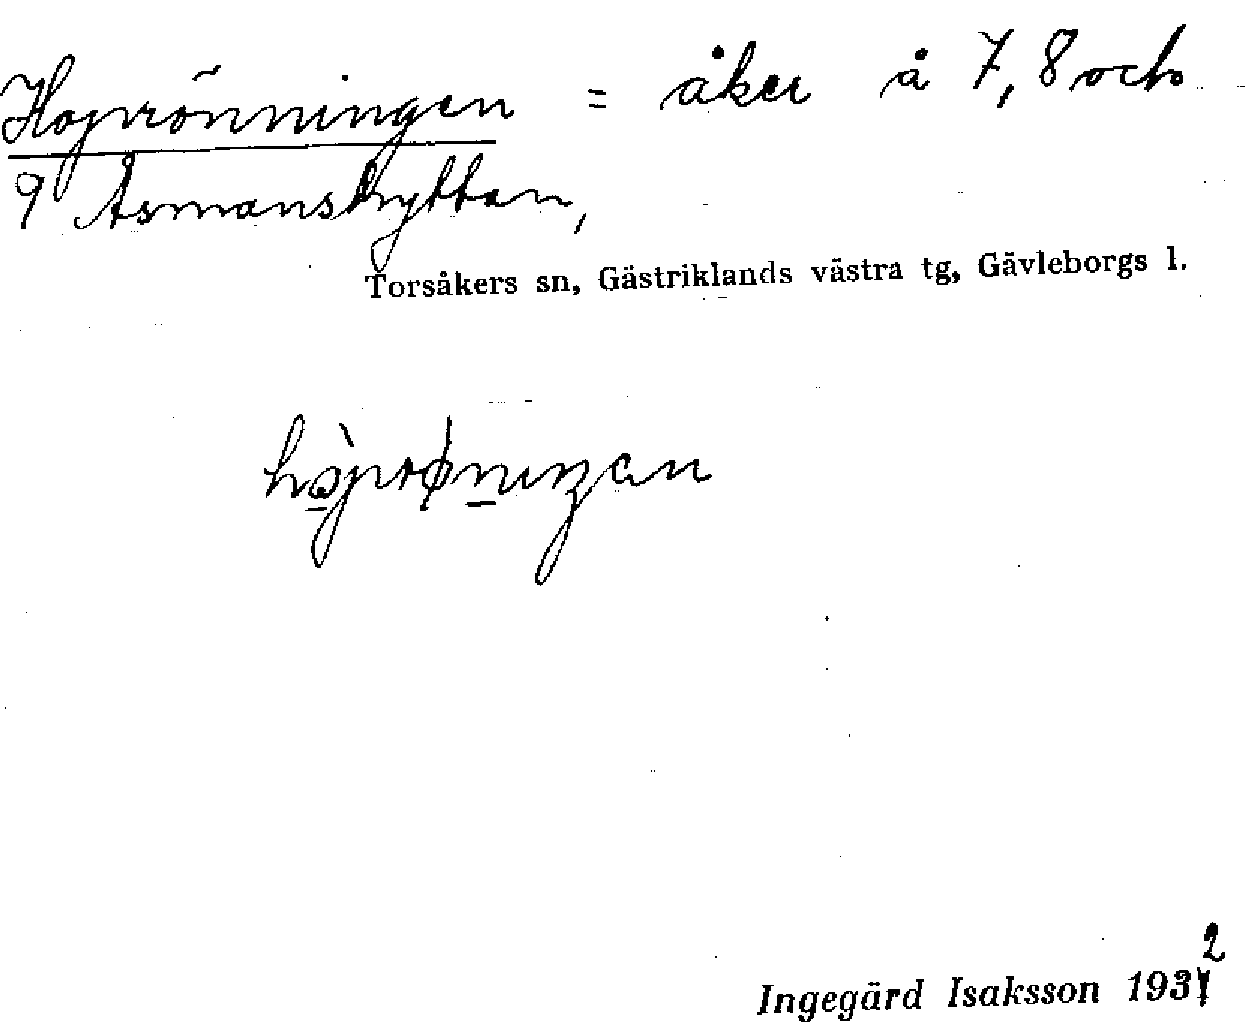 Hoprönningen = åker å 7, 8 och
9 Åsmanshyttan,
Torsåkers sn, Gästriklands västra tg, Gävleborgs l.
Ingegärd Isaksson 1932